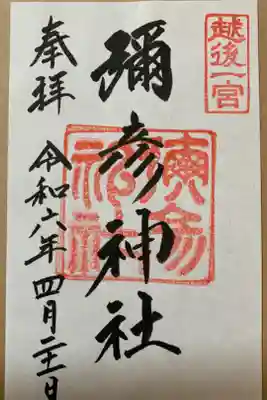 越後一宮
彌彦神社
奉拝
令和六年四月二十一日